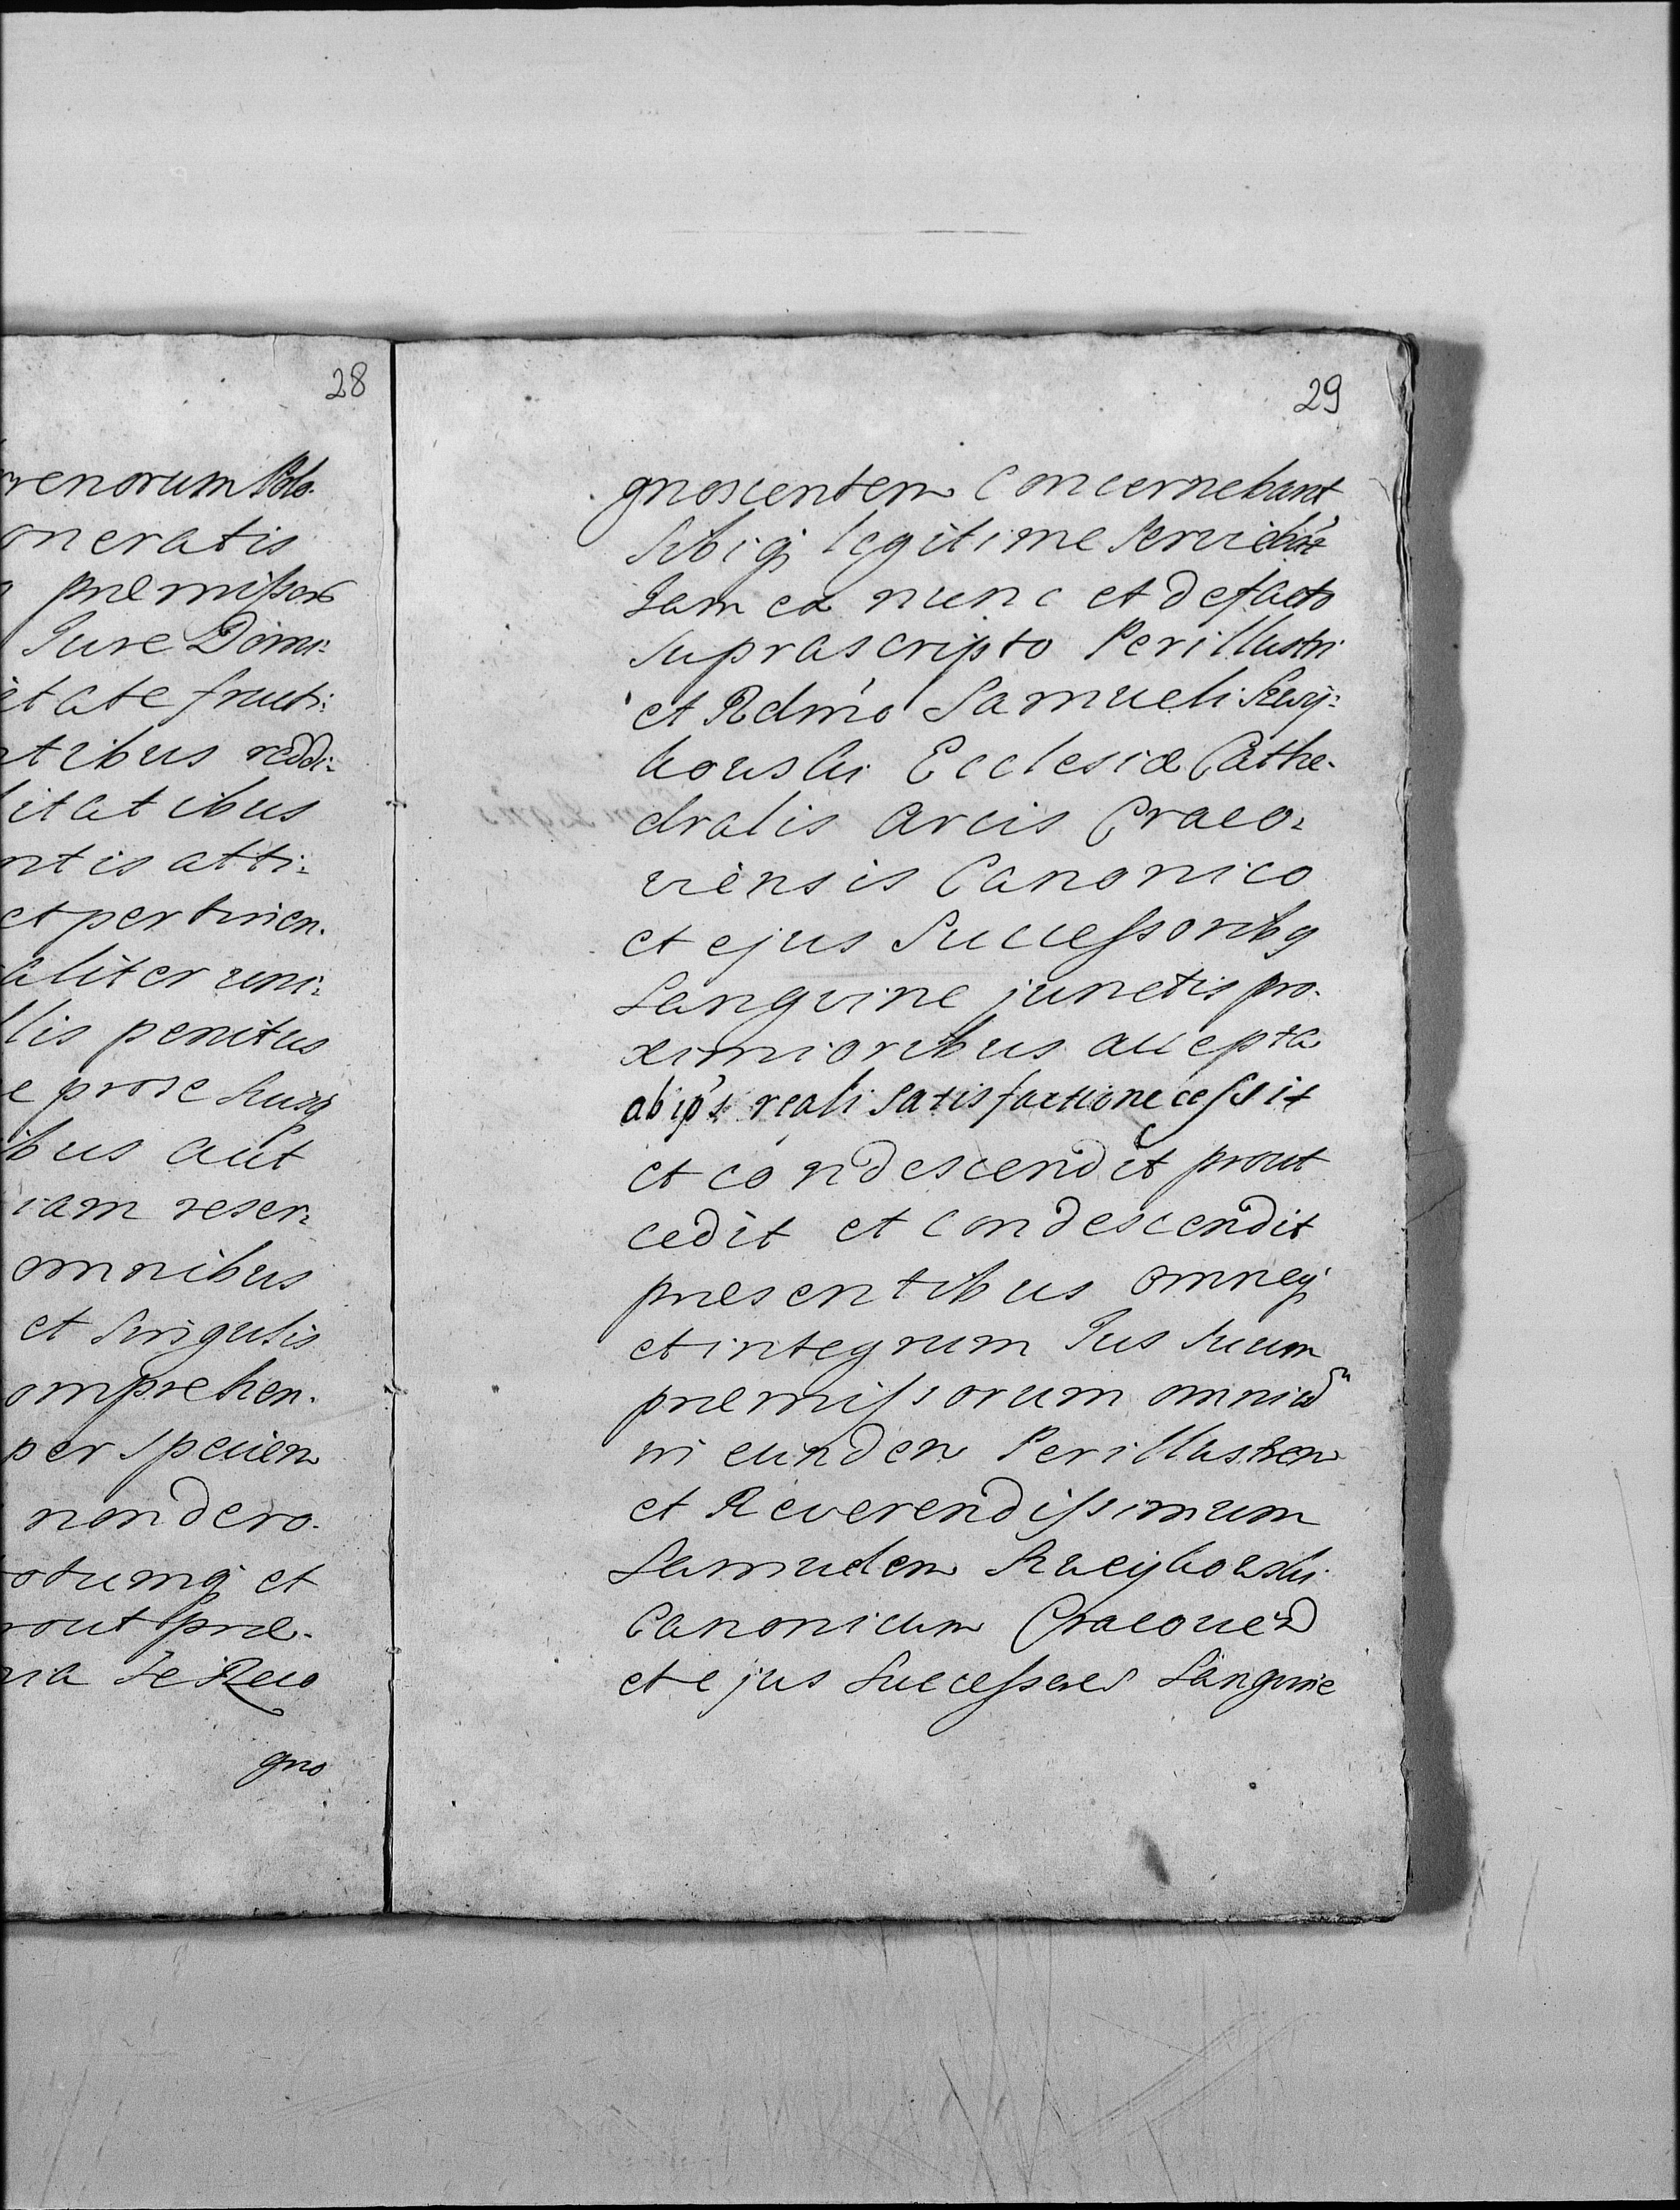 28
renorum Polo.
oneratis
premissor
Jure Domi:
etate fructi:
tibus reddi:
itatibus
ntis atti:
et pertinen.
aliter uni:
llis penitus
e pro se suisq
ibus aut
iam reser:
omnibus
et singulis
omprehen.
per speciem
non dero.
totumq et
rout præ.
nia se Reco
gno
29
gnoscentem concernebant
sibiq legitime serviebant
Jam ex nunc et de facto
suprascripto Perillustri
et Rdmo Samueli
kowski Ecclesiæ Cathe.
dralis Arcis Craco:
viensis Canonico
et ejus Successoribq
Sangvine junctis pro.
ximioribus accepta
ab ip's reali satisfactione cessit
et condescendit prout
cedit et condescendit
presentibus omneq
et integrum Jus suum
præmissorum omnium
in eundem Perillustrem
et Reverendissimum
Samuelem
Canonicum Cracovien
et ejus Successores Sangvine